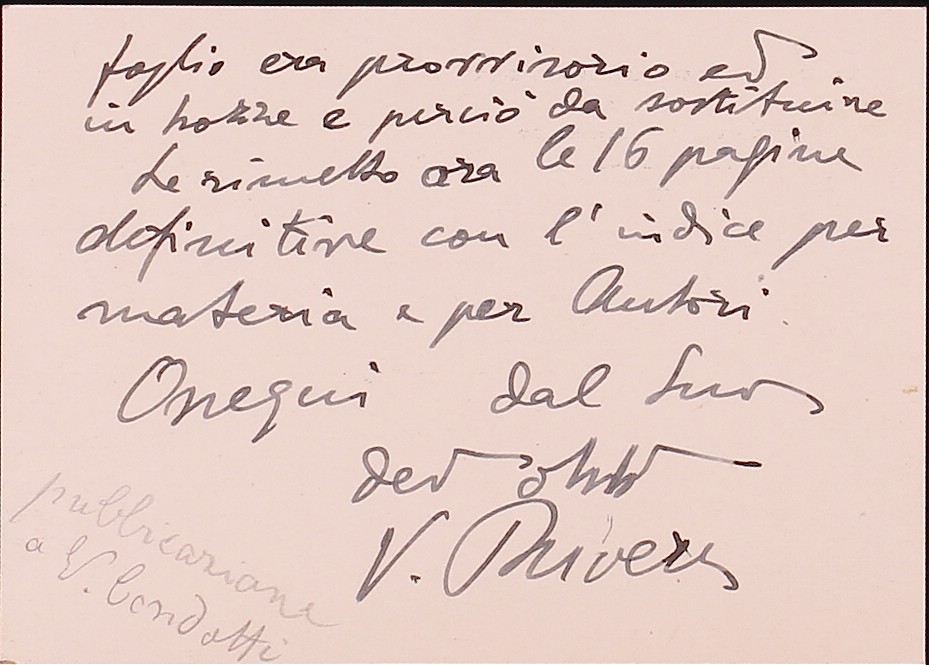 foglio era provvisorio ed
in bozze e perciò da sostituire
Le rimetto ora le 16 pagine
definitive con l'indice per
materia e per Autori.
Ossequi dal Suo
dev
V. Rivera
pubblicazione
a V. Condotti